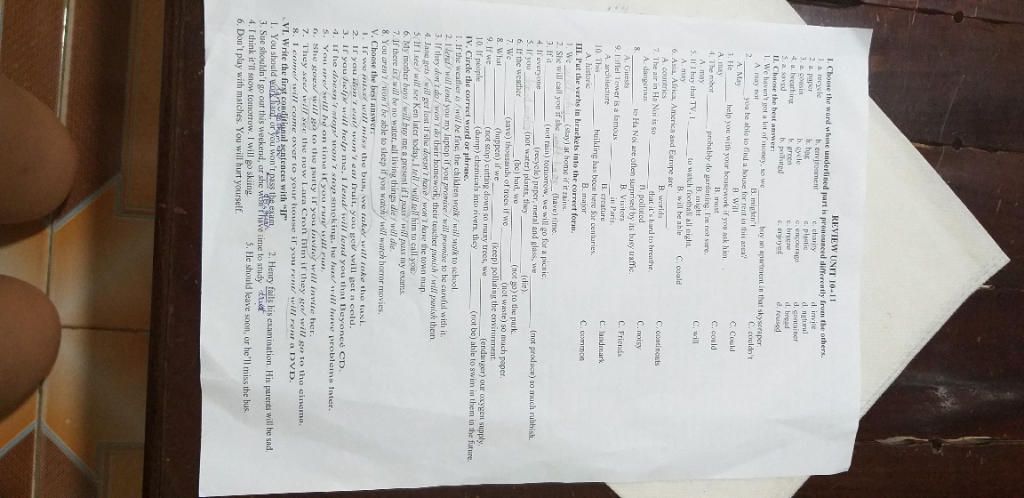 REVIEW UNIT 10-11
I. Choose the word whose underlined part is pronounced differently from the others.
1. a. recycle b. environment c. charity d. invite
2. a. paper b. bag c. plastic d. natural
3. a. contain b. cycle c. encourage d. container
4. a. breathing b. green c. d. bread
5. a. saved b. polluted c. enjoyed d. reused
II. Choose the best answer:
1. We haven't got a lot of money, so we buy an apartment in that skyscraper.
A. may not B. mightn't C. couldn't
2. you be able to find a house for rent in this area?
A. May B. Will C. Could
3. He help you with your housework if you ask him.
A. may B. must C. could
4. The robot probably do gardening. I'm not sure.
A. may B. might C. will
5. If I buy that TV, I to watch football all night.
A. may B. will be able C. could
6. Asia, Africa, America and Europe are
A. countries B. worlds C. continents
7. The air in Ha Noi is so that it's hard to breathe.
A. dangerous B. polluted C. noisy
8. to Ha Noi are often surprised by its busy traffic.
A. Guests B. Visitors C. Friends
9. Eiffel Tower is a famous in Paris.
A. architecture C. landmark
10. The building has been here for centuries.
A. historic B. major C. common
III. Put the verbs in brackets into the correct form:
1. We (stay) at home if it rains.
2. She will call you if she (have) time.
3. If it (not rain) tomorrow, we will go for a picnic.
4. If everyone (recycle) paper, metal and glass, we (not produce) so much rubbish.
5. If you (not water) plants, they (die).
6. If the weather (be) bad, we (not go) to the park.
7. We (save) thousands of trees if we (not waste) so much paper.
8. What (happen) if we (keep) polluting the environment.
9. If we (not stop) cutting down so many trees, we (endanger) our oxygen supply.
10. If people (dump) chemicals into rivers, they (not be) able to swim in them in the future.
IV. Circle the correct word or phrase.
1. If the weather is / will be fine, the children walk / will walk to school.
2. I lend / will lend you my laptop if you promise / will promise to be careful with it.
3. If they don't do / won't do their homework, their teacher punish / will punish them.
4. Jana gets / will get lost if she doesn't have / won't have the town map.
5. If I see / will see Ken later today, I tell / will tell him to call you.
6. My mother buy / will buy me a present if I pass / will pass my exams.
7. If there is / will be no water, all living things die / will die.
8. You aren't / won't be able to sleep if you watch / will watch horror movies.
V. Choose the best answer:
1. If we miss/ will miss the bus, we take/ will take the taxi.
2. If you don't eat/ won't eat fruit, you get/ will get a cold.
3. If you help/ will help me, I lend/ will lend you that Beyonce CD.
4. If he doesn't stop/ won't stop smoking, he has/ will have problems later.
5. You are/ will be on time if you run/ will run.
6. She goes/ will go to the party if you invite/ will invite her.
7. They see/ will see the new Lara Croft film if they go/ will go to the cinema.
8. I come/ will come over to your house if you rent/ will rent a DVD.
VI. Write the first conditional sentences with "If"
1. You should work hard, or you won't pass the exam. 2. Henry fails his examination. His parents will be sad.
3. Sue shouldn't go out this weekend, or she won't have time to study.
4. I think it'll snow tomorrow. I will go skiing. 5. He should leave soon, or he'll miss the bus.
6. Don't play with matches. You will hurt yourself.